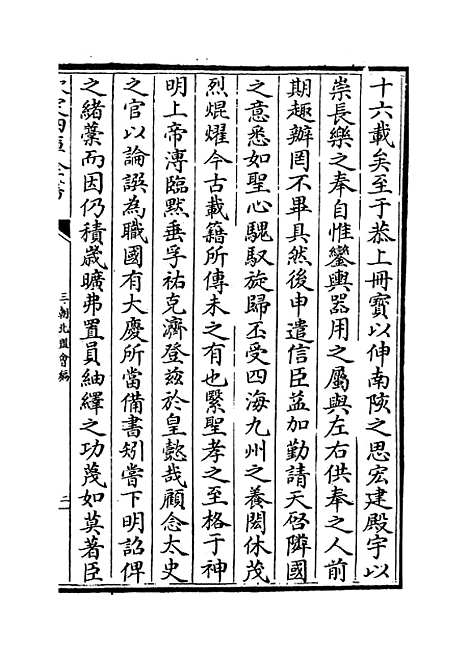 十六載矣至于恭上冊寳以伸南陔之思宏建殿宇以
崇長樂之奉自惟鑾輿器用之屬與左右供奉之人前
期趣辦罔不畢具然後申遣信臣益加勤請天啓隣國
之意悉如聖心騩馭旋歸丕受四海九州之養閎休茂
烈焜耀今古載籍所傳未之有也繄聖孝之至格于神
明上帝溥臨黙垂孚祐克濟登兹於皇懿哉顧念太史
之官以論譔為職國有大慶所當備書矧嘗下明詔俾
之緒藁而因仍積歲曠弗置員紬繹之功蔑如莫著臣
欽定四庫全書
三朝北盟會編
二